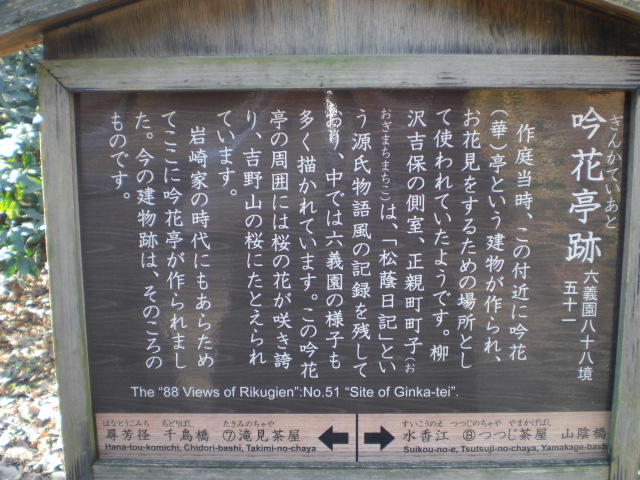 ぎんかていあと
吟花亭跡 六義園八十八境
五十一
作庭当時、この付近に吟花
(華)亭という建物が作られ、
お花見をするための場所とし
て使われていたようです。柳
沢吉保の側室、正親町町子(お
おぎまちまちこ)は、「松蔭日記」とい
う源氏物語風の記録を残して
おり、中では六義園の様子も
多く描かれています。この吟花
亭の周囲には桜の花が咲き誇
り、吉野山の桜にたとえられ
ています。
岩崎家の時代にもあらため
てここに吟花亭が作られまし
た。今の建物跡は、そのころの
ものです。
The "88 Views of Rikugien":No.51 "Site of Ginka-tei".
はなとうこみち ちどりばし たきみのちゃや
尋芳径 千鳥橋 ⑦滝見茶屋
Hana-tou-komichi, Chidori-bashi, Takimi-no-chaya
すいこうのえ つつじのちゃや やまかげばし
水香江 ⑧つつじ茶屋 山陰橋
Suikou-no-e, Tsutsuji-no-chaya, Yamakage-bash